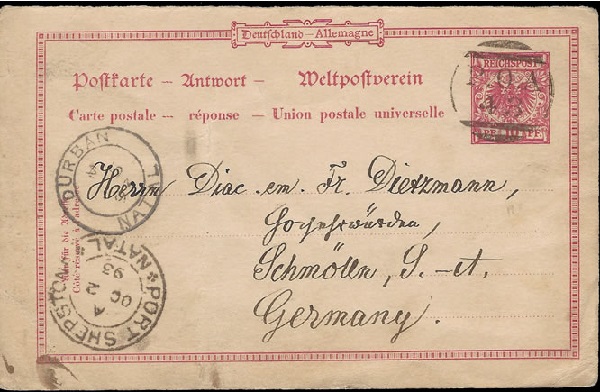 Deutschland—Allemagne
Postkarte – Antwort – Weltpostverein
Carte postale – réponse – Union postale universelle
REICHSPOST
10
DURBAN
NATAL
Herrn Diac. em. Fr. Dietzmann,
Hochehrwürden,
Schmölln, S.-A.
Germany.
PORT SHEPSTONE
NATAL
A
OC 2
93